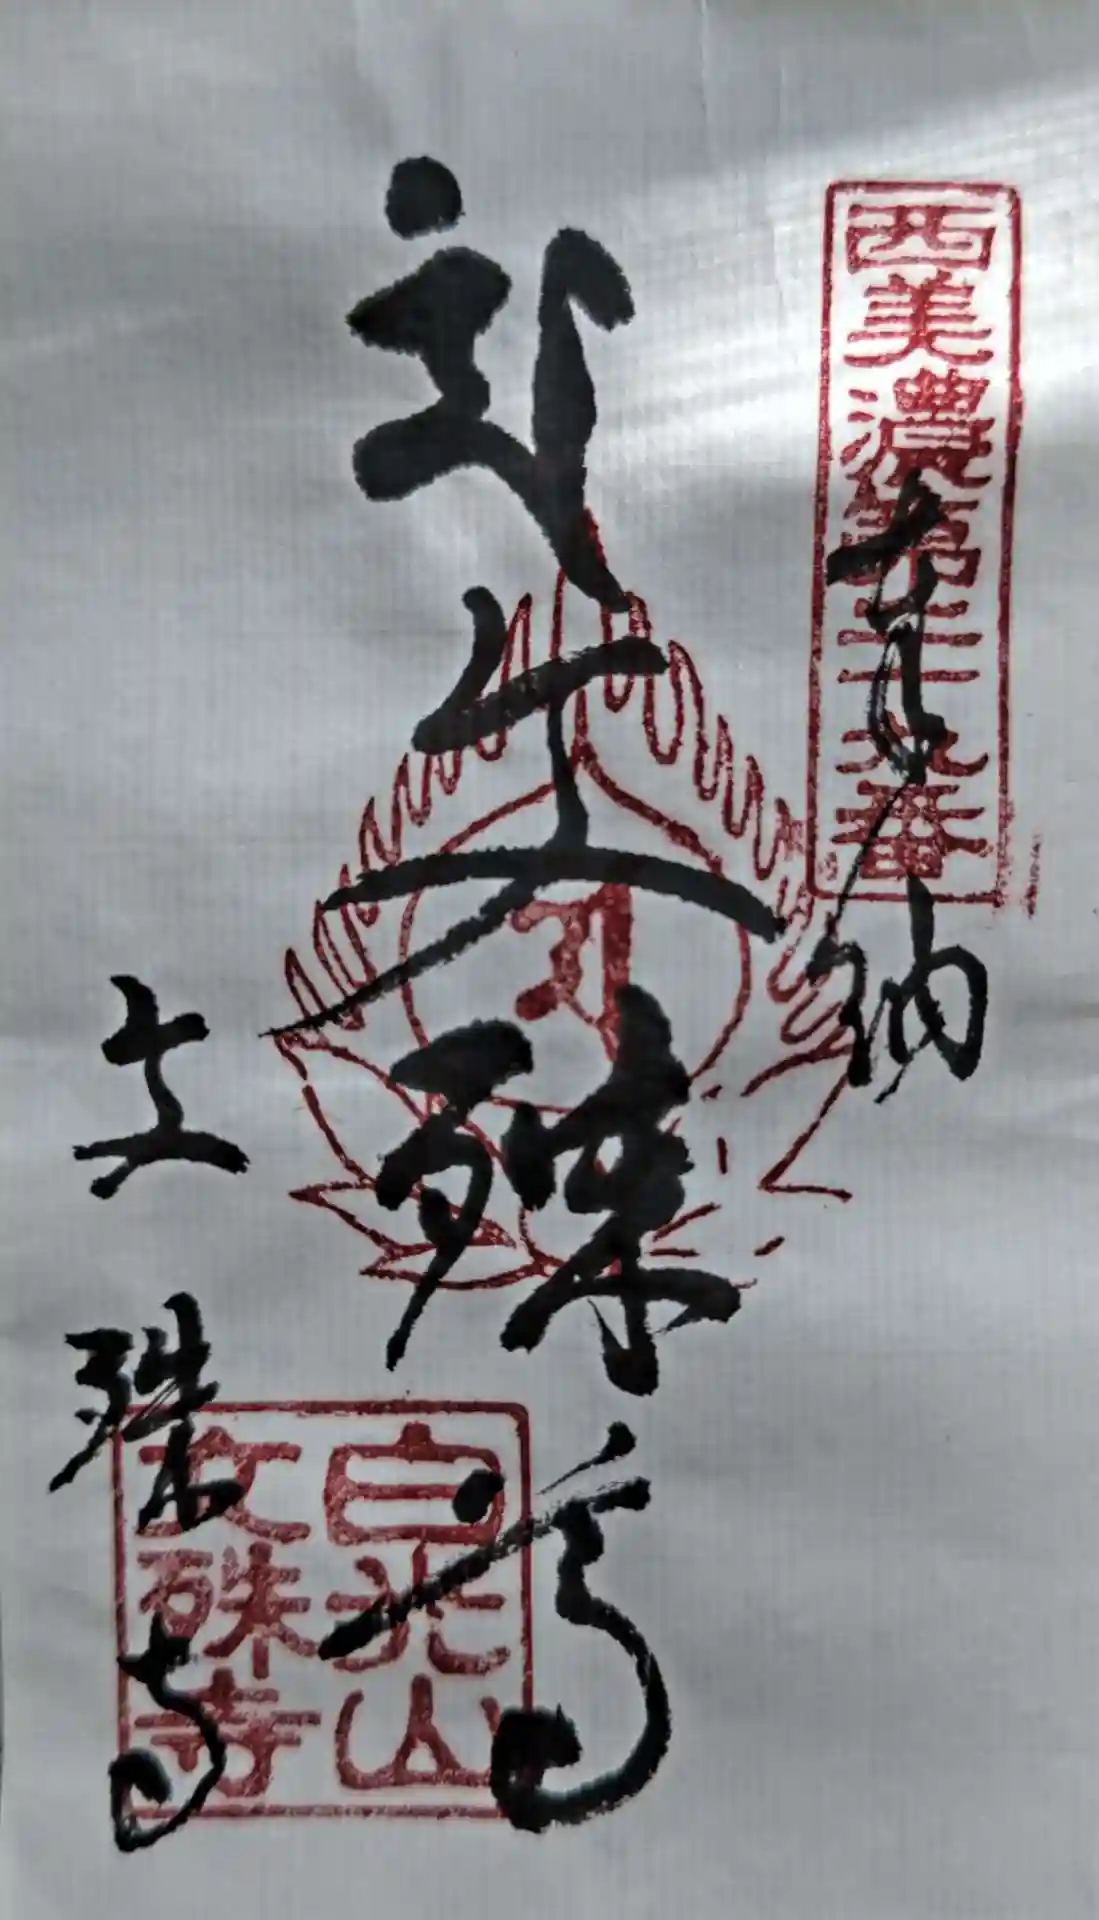 西美濃第二十九番
奉納
文殊尊
文殊寺
白光山
文殊寺